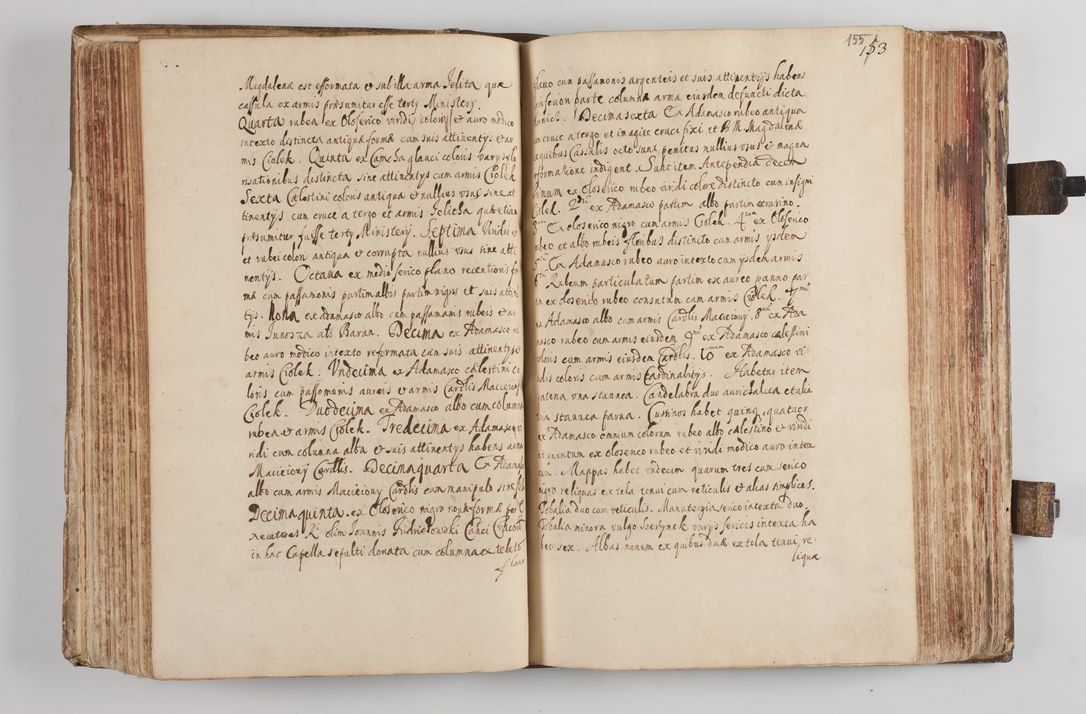 Magdalena est efformata et sub illa arma Jelita quæ
cassula ex armis præsumitur esse terty Ministery.
Quarta rubea ex Oloserico viridi colore et auro modico
intexto distincta antiqua formæ cum suis attinentys et ar
mis Ciolek. Quinta ex Camcha glauci coloris varys flo
risationibus distincta sine attinentys cum armis Ciolek
Sexta Cælestini coloris antiqua et nullius usus sine at
tinentys cum cruce a tergo et armis Jelitha quæ etiam
præsumitur fuisse terty Ministery. Septima viridis
et rubei coloris antiqua et corrupta nullius usus sine atti
nentys. Octava ex medio serico flavo recentioris for
ma cum passamonis partim albis partim nigris et suis attinen
tys. Nona ex adamasco albo cum passamanis rubeis et ar
mis Junosza als Baran. Decima ex Adamasco ru
beo auro modico intexto reformata cum suis attinentys et
armis Ciolek. Undecima ex Adamasco cælestini co
loris cum passomonis aureis et armis Cardlis Macieiowy
Ciolek. Duodecima ex Adamasco albo cum columna
rubea et armis Ciolek. Tredecima ex Adamasco vi
ridi cum columna alba et suis attinentys habens arma
Macieiowy Cardlis. Decimaquarta Ex Adamasco
albo cum armis Macieiowy Cardlis cum manipulo sine stola
Decimaquinta ex Oloserico nigro nova formæ per
executores Rdi olim Joannis Canci Cracovi
in hac Capella sepulti donata cum columna ex telete
flavo
flavo cum passamonis argenteis et suis attinentys habens
inferiori parte columnæ arma eiusdem defuncti dicta
Decimasexta Ex Adamasco rubeo antiqua
cum cruce a tergo et imagine crucifixi et B. M. Magdalenæ
ex quibus Cassulis octo sunt penitus nullius usus et magna
reformatione indigent. Sunt item Antependia Decem
Primum ex Oloserico rubeo viridi colore distincto cum insigni
Ciolek. 2dum ex Adamasco partim albo partim
3um Ex oloserico nigro cum armis Ciolek. 4tum ex Oloserico
rubeo et albo rubeis floribus distincto cum armis ysdem
Ex Adamasco rubeo auro intexto cum ysdem armis
6tum Rubeum particulatum partim ex aureo panno par
tim ex oloserico rubeo consutum cum armis Ciolek. 7mum
ex Adamasco albo cum armis Cardlis Macieiowy. 8um ex Ada
masco rubeo cum armis eiusdem 9um ex Adamasco cælestini
coloris cum armis eiusdem Cardlis. 10mum ex Adamasco vi
ridis coloris cum armis Cardinalitys. Habetur item
patena una stannea. Candelabra duo aurichalcea et alia
duo stannea parva. Cussinos habet quinq, quatuor
ex Adamasco omnium colorum rubeo albo cælestino et viridi
et quintum ex oloserico rubeo et viridi modico auro intex
tum. Mappas habet undecim quarum tres cum serico
nigro reliquas ex tela tenui cum reticulis et alias simplices.
Tobalia duo cum reticulis. Manutergia serico intexta duo.
Tobalia minora vulgo Szerzynek varys sericis intexta ha
bet sex. Albas novem ex quibus duæ ex tela tenui, re-
liquæ
155
153